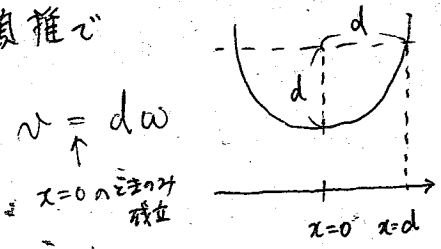 類推で
v = dω
↑
x=0 のときのみ
成立
d
d
x=0 x=d